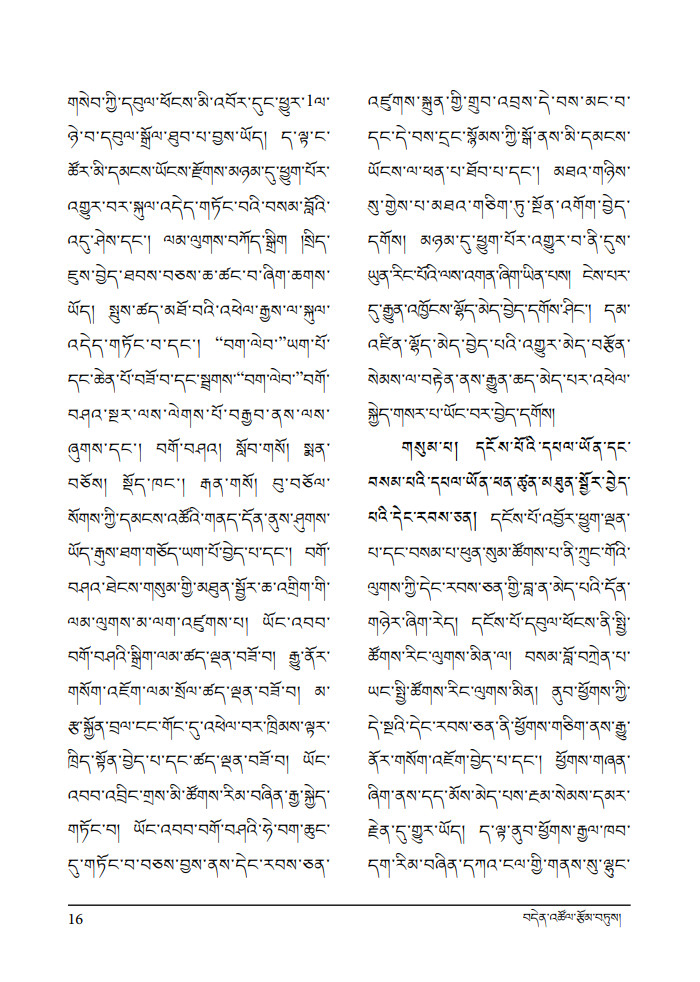 གསེབ་ཀྱི་དབུལ་ཕོངས་མི་འབོར་དུང་ཕྱུར་1ལ་
ཉེ་བ་དབུལ་སྒྲོལ་ཐུབ་པ་བྱས་ཡོད། ད་ལྟ་ང་
ཚོར་མི་དམངས་ཡོངས་རྫོགས་མཉམ་དུ་ཕྱུག་པོར་
འགྱུར་བར་སྐུལ་འདེད་གཏོང་བའི་བསམ་བློའི་
འདུ་ཤེས་དང་། ལམ་ལུགས་བཀོད་སྒྲིག །སྲིད་
ཇུས་བྱེད་ཐབས་བཅས་ཆ་ཚང་བ་ཞིག་ཆགས་
ཡོད། སྤུས་ཚད་མཐོ་བའི་འཕེལ་རྒྱས་ལ་སྐུལ་
འདེད་གཏོང་བ་དང་། “བག་ལེབ་”ཡག་པོ་
དང་ཆེན་པོ་བཟོ་བ་དང་སྦྲགས་“བག་ལེབ་”བགོ་
བཤའ་སྔར་ལས་ལེགས་པོ་བརྒྱབ་ནས་ལས་
ཞུགས་དང་། བགོ་བཤའ། སློབ་གསོ། སྨན་
བཅོས། སྡོད་ཁང་། རྒན་གསོ། བུ་བཅོལ་
སོགས་ཀྱི་དམངས་འཚོའི་གནད་དོན་ནུས་ཤུགས་
ཡོད་རྒུས་ཐག་གཅོད་ཡག་པོ་བྱེད་པ་དང་། བགོ་
བཤའ་ཐེངས་གསུམ་གྱི་མཐུན་སྦྱོར་ཆ་འགྲིག་གི་
ལམ་ལུགས་མ་ལག་འཛུགས་པ། ཡོང་འབབ་
བགོ་བཤའི་སྒྲིག་ལམ་ཚད་ལྡན་བཟོ་བ། རྒྱུ་ནོར་
གསོག་འཇོག་ལམ་སྲོལ་ཚད་ལྡན་བཟོ་བ། མ་
རྩ་སྐྱོན་བྲལ་ངང་གོང་དུ་འཕེལ་བར་ཁྲིམས་ལྟར་
ཁྲིད་སྟོན་བྱེད་པ་དང་ཚད་ལྡན་བཟོ་བ། ཡོང་
འབབ་འབྲིང་གྲས་མི་ཚོགས་རིམ་བཞིན་རྒྱ་སྐྱེད་
གཏོང་བ། ཡོང་འབབ་བགོ་བཤའི་ཧེ་བག་ཆུང་
དུ་གཏོང་བ་བཅས་བྱས་ནས་དེང་རབས་ཅན་
འཛུགས་སྐྲུན་གྱི་གྲུབ་འབྲས་དེ་བས་མང་བ་
དང་དེ་བས་དྲང་སྙོམས་ཀྱི་སྒོ་ནས་མི་དམངས་
ཡོངས་ལ་ཕན་པ་ཐོབ་པ་དང་། མཐའ་གཉིས་
སུ་གྱེས་པ་མཐའ་གཅིག་ཏུ་སྔོན་འགོག་བྱེད་
དགོས། མཉམ་དུ་ཕྱུག་པོར་འགྱུར་བ་ནི་དུས་
ཡུན་རིང་པོའི་ལས་འགན་ཞིག་ཡིན་པས། ངེས་པར་
དུ་རྒྱུན་འཁྱོངས་ལྷོད་མེད་བྱེད་དགོས་ཤིང་། དམ་
འཛིན་ལྷོད་མེད་བྱེད་པའི་འགྱུར་མེད་བརྩོན་
སེམས་ལ་བརྟེན་ནས་རྒྱུན་ཆད་མེད་པར་འཕེལ་
སྐྱེད་གསར་པ་ཡོང་བར་བྱེད་དགོས།
གསུམ་པ། དངོས་པོའི་དཔལ་ཡོན་དང་
བསམ་པའི་དཔལ་ཡོན་ཕན་ཚུན་མཐུན་སྦྱོར་བྱེད་
པའི་དེང་རབས་ཅན། དངོས་པོ་འབྱོར་ཕྱུག་ལྡན་
པ་དང་བསམ་པ་ཕུན་སུམ་ཚོགས་པ་ནི་ཀྲུང་གོའི་
ལུགས་ཀྱི་དེང་རབས་ཅན་གྱི་བླ་ན་མེད་པའི་དོན་
གཉེར་ཞིག་རེད། དངོས་པོ་དབུལ་ཕོངས་ནི་སྤྱི་
ཚོགས་རིང་ལུགས་མིན་ལ། བསམ་བློ་བཀྲེན་པ་
ཡང་སྤྱི་ཚོགས་རིང་ལུགས་མིན། ནུབ་ཕྱོགས་ཀྱི་
དེ་སྔའི་དེང་རབས་ཅན་ནི་ཕྱོགས་གཅིག་ནས་རྒྱུ་
ནོར་གསོག་འཇོག་བྱེད་པ་དང་། ཕྱོགས་གཞན་
ཞིག་ནས་དད་མོས་མེད་པས་རྔམ་སེམས་དམར་
རྗེན་དུ་གྱུར་ཡོད། ད་ལྟ་ནུབ་ཕྱོགས་རྒྱལ་ཁབ་
དག་རིམ་བཞིན་དཀའ་ངལ་གྱི་གནས་སུ་ལྷུང་
16
བདེན་འཚོལ་རྩོམ་བཏུས།